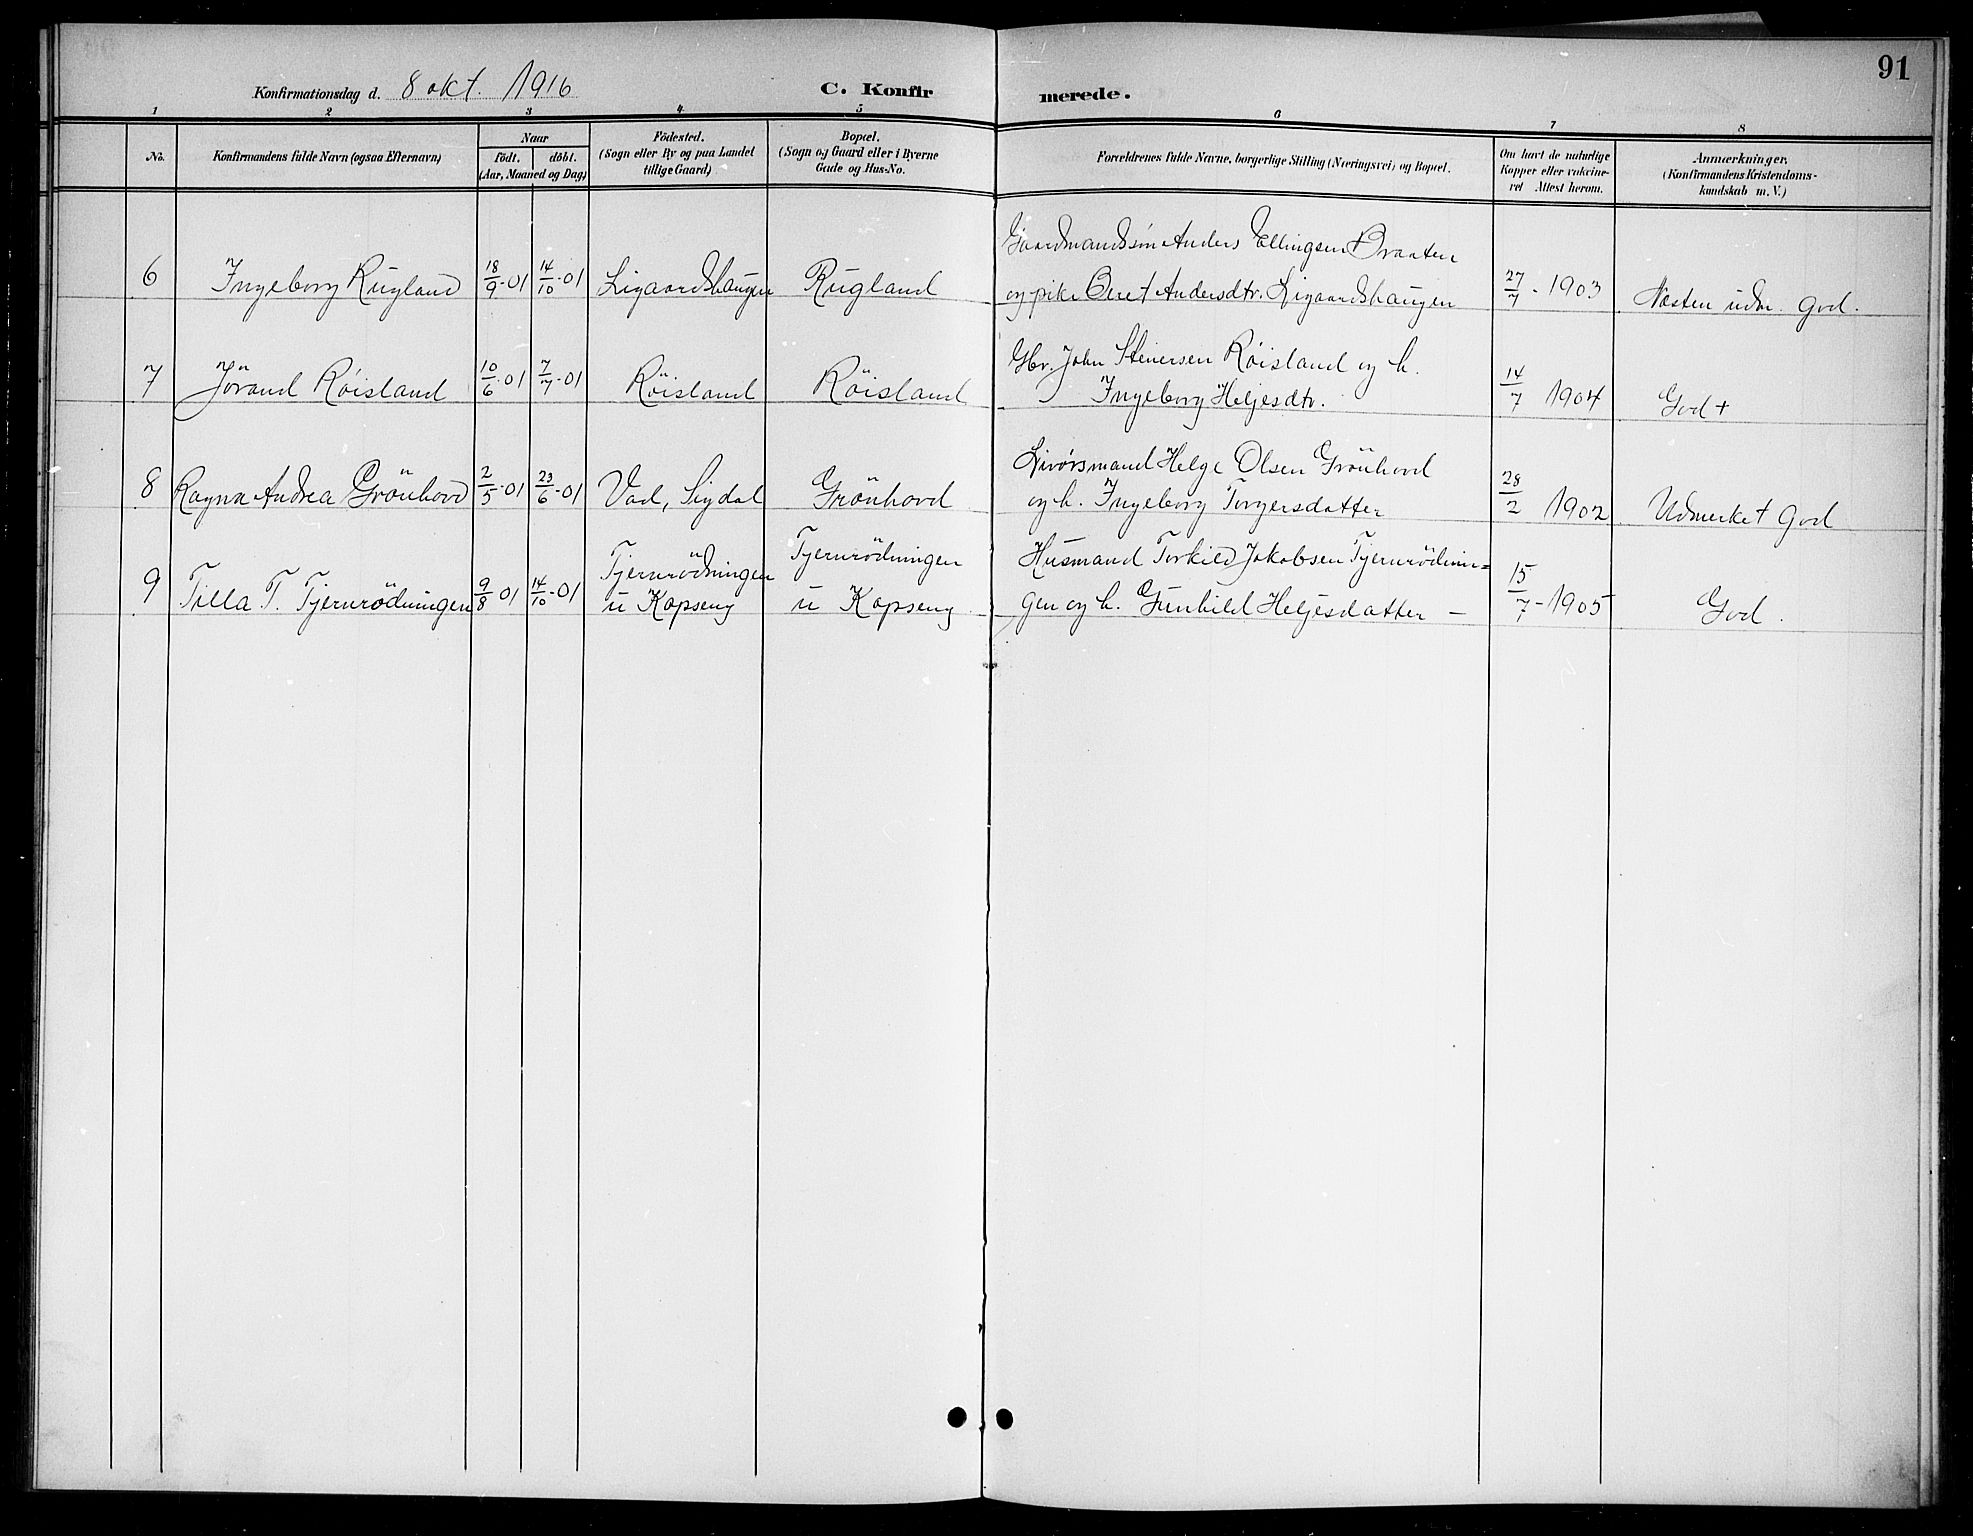 91
Konfirmationsdag d. 8 okt. 1916
C. Konfirmerede.
1 2 3 4 5 6 7 8
No.
Konfirmandens fulde Navn (ogsaa Efternavn)
Naar
födt. döbt.
(Aar, Maaned og Dag)
Födested.
(Sogn eller By og paa Landet
tillige Gaard)
Bopæl.
(Sogn og Gaard eller i Byerne
Gade og Hus-No.
Forældrenes fulde Navne, borgerlige Stilling (Næringsvei) og Bopæl.
Om havt de naturlige
Kopper eller vakcine-
ret Attest herom.
Anmærkninger.
(Konfirmandens Kristendoms-
kundskab m. V.)
Gaardmandssøn Anders Ellingsen Braaten
6 Ingeborg Rugland 18/9-01 14/10-01 Ligaardshaugen Rugland og pike Beret Andersdtr. Ligaardshaugen 27/7-1903 Næsten udm. God.
Gbr. John Steinersen Röisland og h.
7 Jörand Röisland 10/6-01 7/7-01 Röisland Röisland Ingeborg Heljesdtr. 14/7 1904 God +
Livörsmand Helge Olsen Grönhovd
8 Ragna Andrea Grönhovd 2/5-01 23/6-01 Vad, Sigdal Grönhovd og h. Ingeborg Torgersdatter 28/2 1902 Udmerket God
Tjernrödningen Tjernrödningen Husmand Torkild Jakobsen Tjernrödnin=
9 Tilla T. Tjernrödningen 9/8 01 14/10-01 u Kopseng u Kopseng gen og h. Gunhild Heljesdatter — 15/7-1905 God.